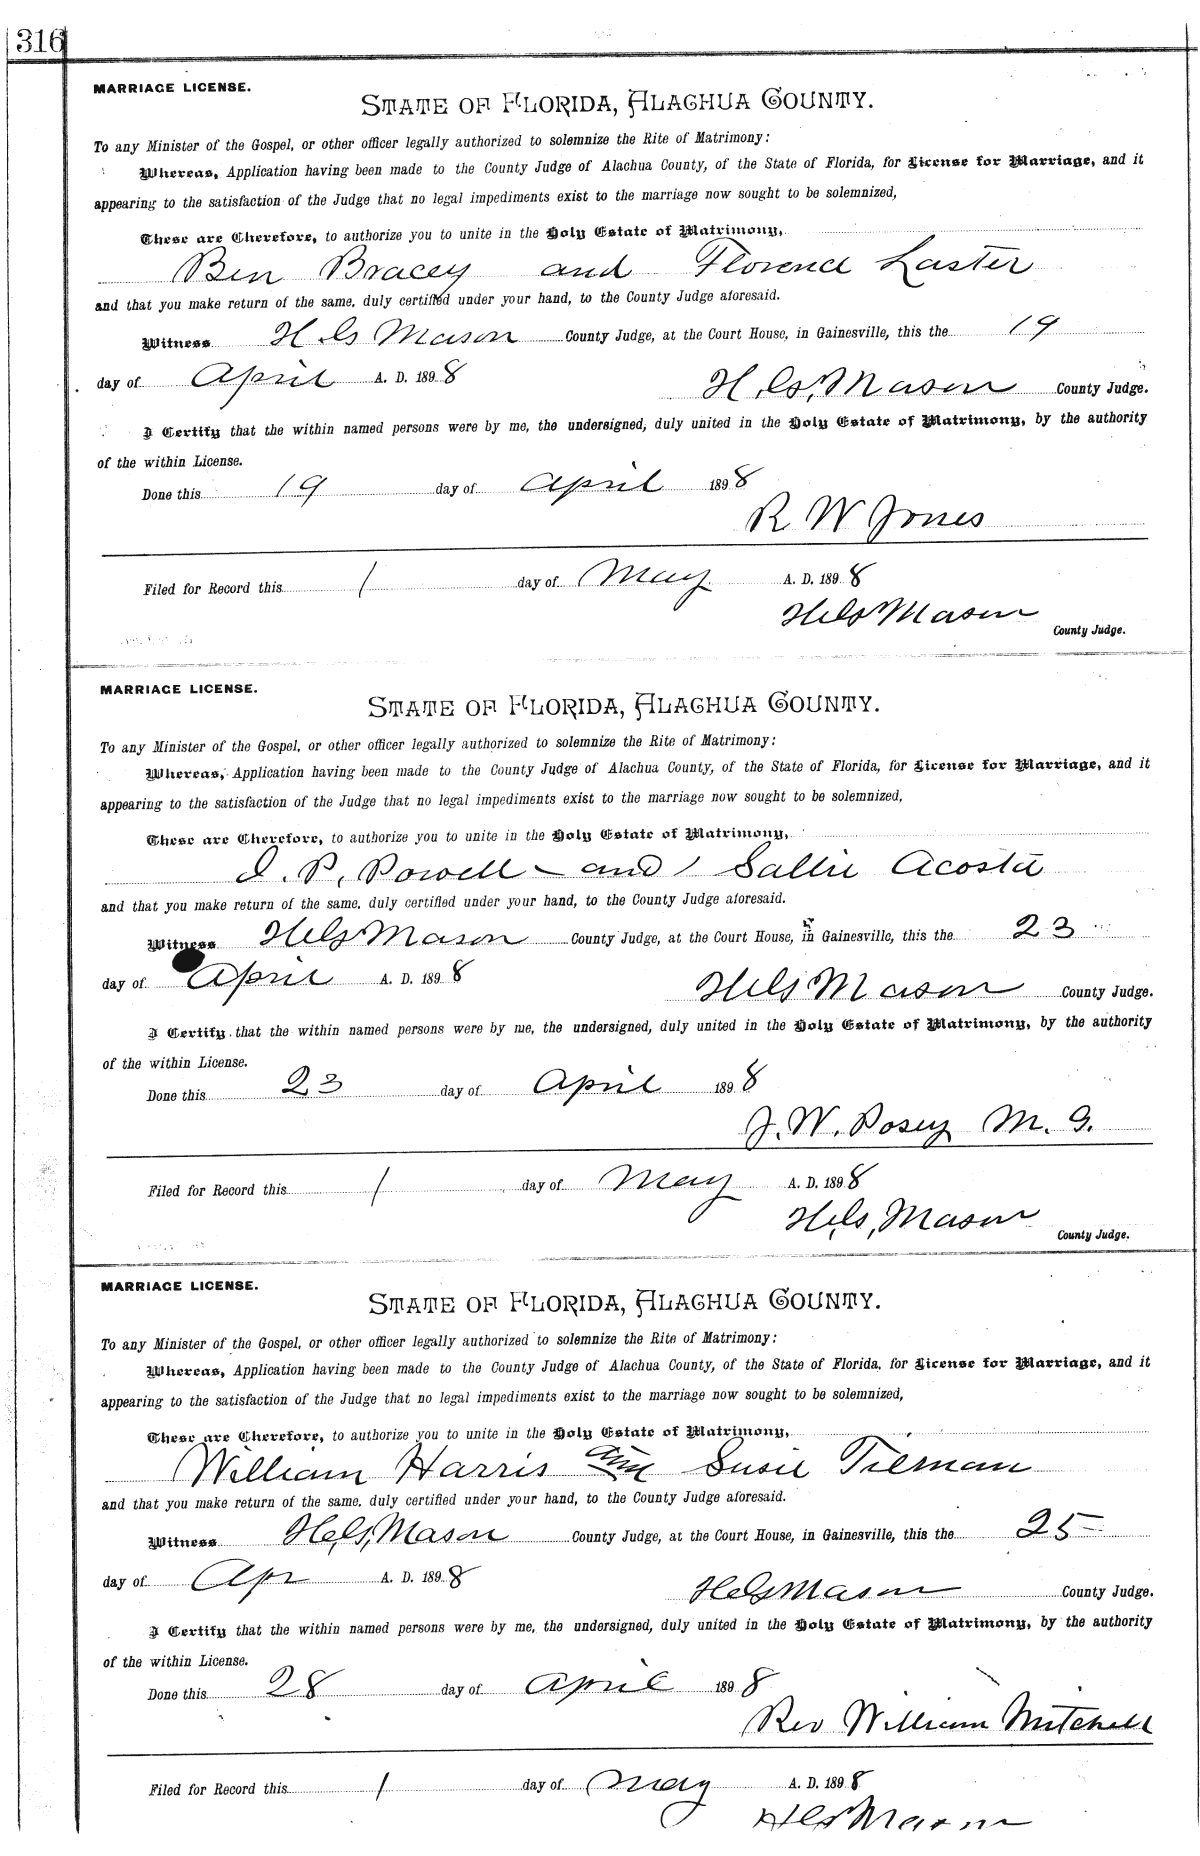 316
MARRIAGE LICENSE.
STATE OF FLORIDA, ALACHUA COUNTY.
To any Minister of the Gospel, or other officer legally authorized to solemnize the Rite of Matrimony:
Whereas, Application having been made to the County Judge of Alachua County, of the State of Florida, for License for Marriage, and it
appearing to the satisfaction of the Judge that no legal impediments exist to the marriage now sought to be solemnized,
These are Therefore, to authorize you to unite in the Holy Estate of Matrimony,
Ben Bracey and Florence Laster
and that you make return of the same, duly certified under your hand, to the County Judge aforesaid.
Witness H. G. Mason County Judge, at the Court House, in Gainesville, this the 19
day of April A. D. 1898 H. G. Mason County Judge.
I Certify that the within named persons were by me, the undersigned, duly united in the Holy Estate of Matrimony, by the authority
of the within License.
Done this 19 day of April 1898
R W Jones
Filed for Record this 1 day of May A. D. 1898
H. G. Mason
County Judge.
MARRIAGE LICENSE.
STATE OF FLORIDA, ALACHUA COUNTY.
To any Minister of the Gospel, or other officer legally authorized to solemnize the Rite of Matrimony:
Whereas, Application having been made to the County Judge of Alachua County, of the State of Florida, for License for Marriage, and it
appearing to the satisfaction of the Judge that no legal impediments exist to the marriage now sought to be solemnized,
These are Therefore, to authorize you to unite in the Holy Estate of Matrimony,
I. P. Powell and Sallie Acosta
and that you make return of the same, duly certified under your hand, to the County Judge aforesaid.
Witness H. G. Mason County Judge, at the Court House, in Gainesville, this the 23
day of April A. D. 1898 H. G. Mason County Judge.
I Certify that the within named persons were by me, the undersigned, duly united in the Holy Estate of Matrimony, by the authority
of the within License.
Done this 23 day of April 1898
J. W. Posey M. G.
Filed for Record this 1 day of May A. D. 1898
H. G. Mason
County Judge.
MARRIAGE LICENSE.
STATE OF FLORIDA, ALACHUA COUNTY.
To any Minister of the Gospel, or other officer legally authorized to solemnize the Rite of Matrimony:
Whereas, Application having been made to the County Judge of Alachua County, of the State of Florida, for License for Marriage, and it
appearing to the satisfaction of the Judge that no legal impediments exist to the marriage now sought to be solemnized,
These are Therefore, to authorize you to unite in the Holy Estate of Matrimony,
William Harris and Susie Tilman
and that you make return of the same, duly certified under your hand, to the County Judge aforesaid.
Witness H. G. Mason County Judge, at the Court House, in Gainesville, this the 25
day of Apr A. D. 1898 H. G. Mason County Judge.
I Certify that the within named persons were by me, the undersigned, duly united in the Holy Estate of Matrimony, by the authority
of the within License.
Done this 28 day of April 1898
Rev William Mitchell
Filed for Record this 1 day of May A. D. 1898
H. G. Mason